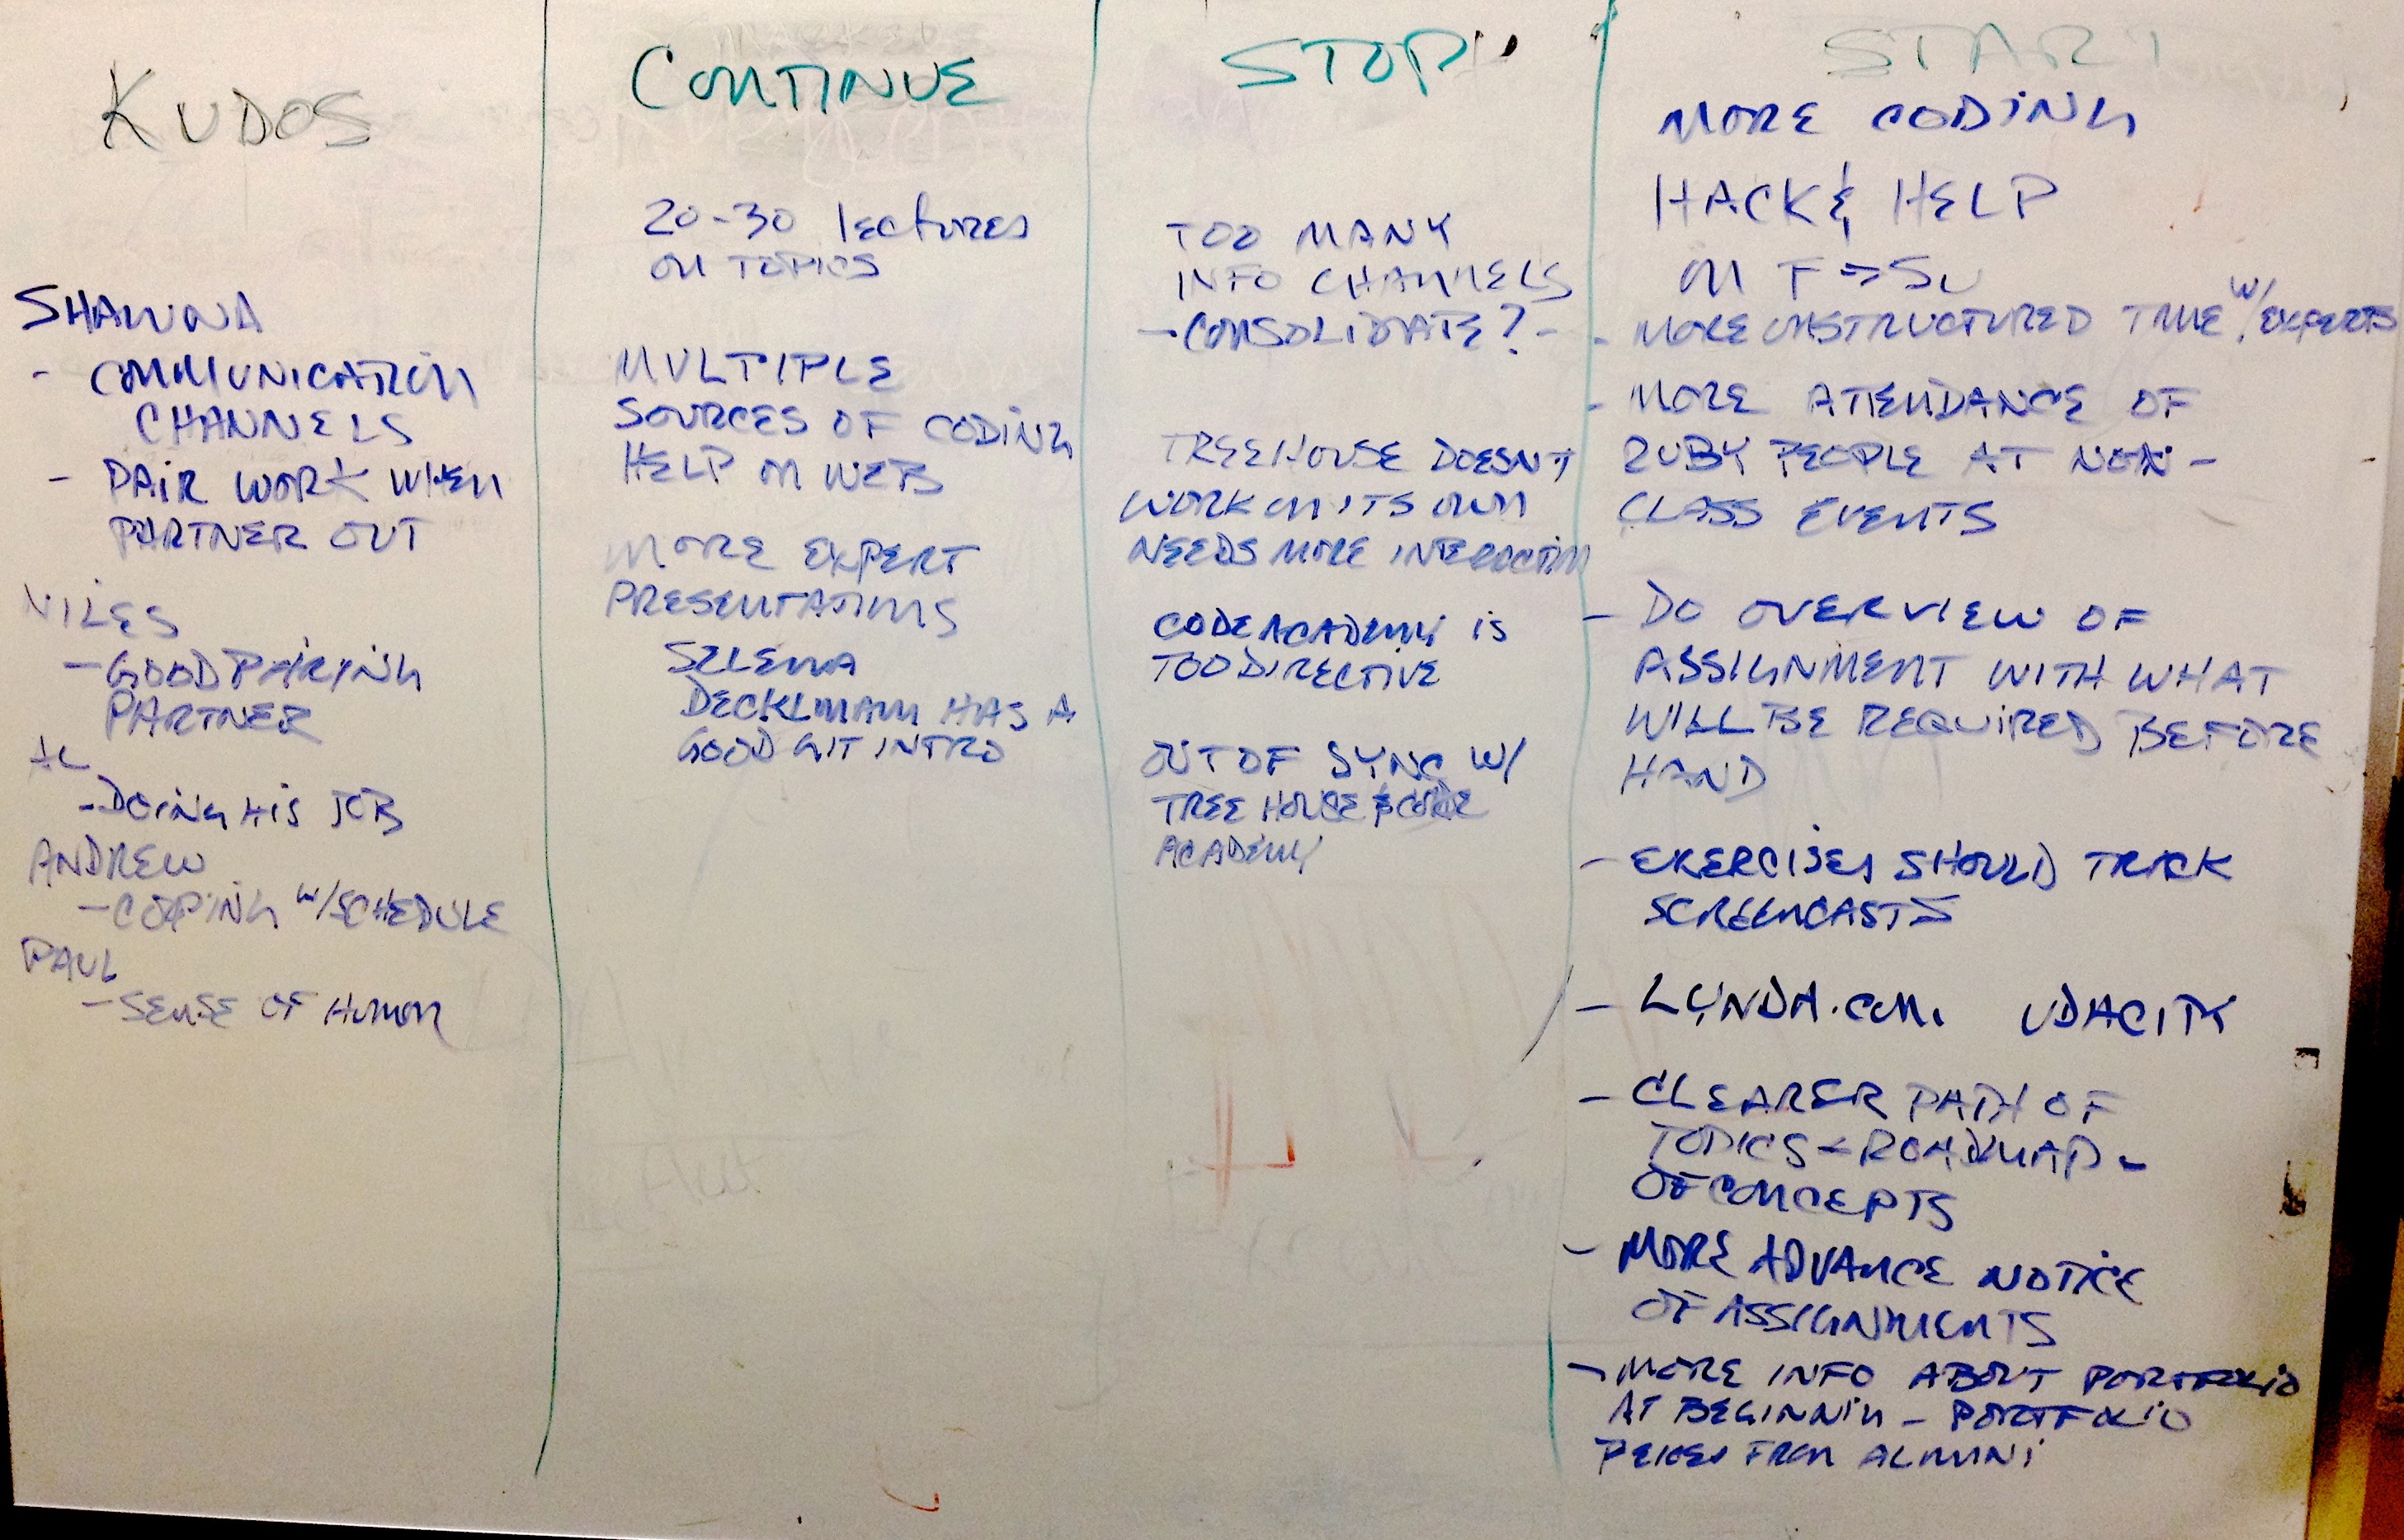 KUDOS
SHAWNA
- COMMUNICATION
CHANNELS
- PAIR WORK WHEN
PARTNER OUT
NILES
- GOOD PAIRING
PARTNER
AL
- DOING HIS JOB
ANDREW
- COPING W/SCHEDULE
PAUL
- SENSE OF HUMOR
CONTINUE
20-30 lectures
ON TOPICS
MULTIPLE
SOURCES OF CODING
HELP ON WEB
MORE EXPERT
PRESENTATIONS
SELENA
DECKLMANN HAS A
GOOD GIT INTRO
STOP
TOO MANY
INFO CHANNELS
- CONSOLIDATE? -
TREEHOUSE DOESN'T
WORK ON ITS OWN
NEEDS MORE INTERACTION
CODE ACADEMY IS
TOO DIRECTIVE
OUT OF SYNC W/
TREE HOUSE & CODE
ACADEMY
START
MORE CODING
HACK & HELP
ON F => SU
- MORE UNSTRUCTURED TIME W/ EXPERTS
- MORE ATTENDANCE OF
RUBY PEOPLE AT NON-
CLASS EVENTS
- DO OVERVIEW OF
ASSIGNMENT WITH WHAT
WILL BE REQUIRED BEFORE
HAND
- EXERCISES SHOULD TRACK
SCREENCASTS
- LYNDA.COM. UDACITY
- CLEARER PATH OF
TOPICS - ROADMAP -
OF CONCEPTS
- MORE ADVANCE NOTICE
OF ASSIGNMENTS
- MORE INFO ABOUT PORTFOLIO
AT BEGINNIN - PORTFOLIO
FROM ALUMNI